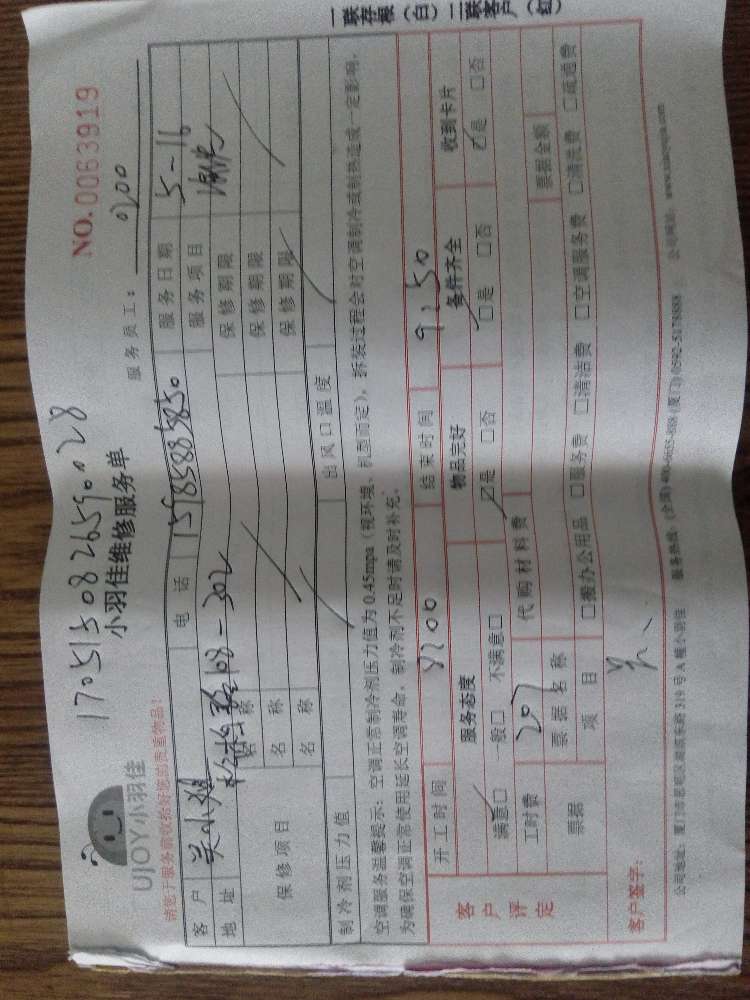 一联存根（白）二联客户（红）
17051508265900028
NO. 0063919
UJOY小羽佳
小羽佳维修服务单
服务员工：0200
请您于服务前收拾好您的贵重物品！
客 户 吴小姐 电 话 15985885850 服务日期 5-16
地 址 108-302 服务项目
保修项目 名 称 保修期限
名 称 保修期限
名 称 保修期限
制冷剂压力值 出风口温度
空调服务温馨提示：空调正常制冷剂压力值为0.45mpa（视环境、机型而定），拆装过程会对空调制冷或制热造成一定影响，
为确保空调正常使用延长空调寿命，制冷剂不足时请及时补充。
客户评定 开工时间 8:00 结束时间 9:50
服务态度 物品完好 备件齐全 收到卡片
满意□ 一般□ 不满意□ ☑是 □否 □是 □否 ☑是 □否
工时费 207 代购材料费
票据 票据名称 票据金额
项 目 □搬办公用品 □服务费 □清洁费 □空调服务费 □清洗费 □疏通费
客户签字：
公司地址：厦门市思明区湖滨东路319号A幢小羽佳 服务热线：(全国)400-6655-888 (厦门)0592-5178888 公司网址：www.xiaoyujia.com